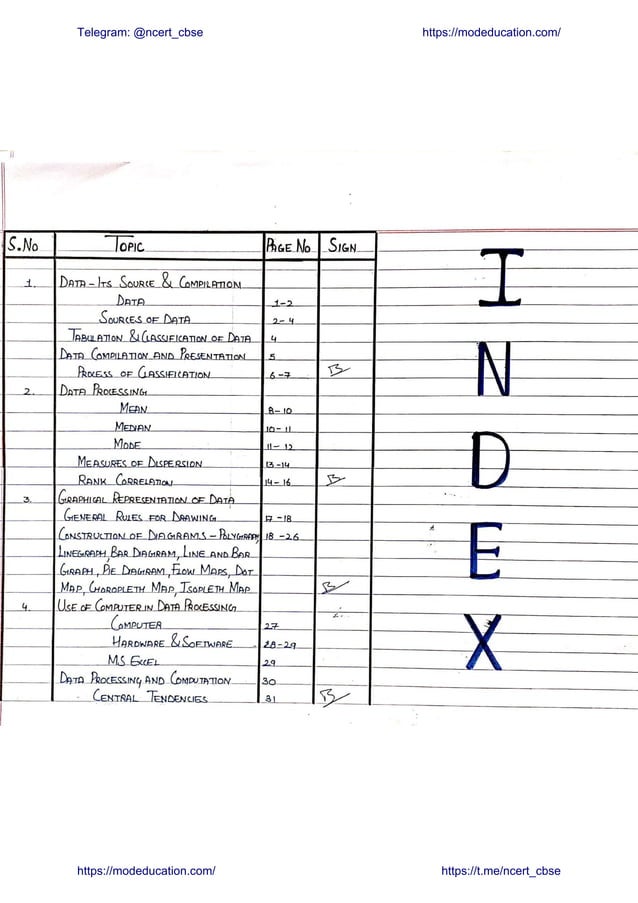 Telegram: @ncert_cbse https://modeducation.com/
S.No Topic Page No Sign
1. Data - Its Source & Compilation
Data 1-2
Sources of Data 2-4
Tabulation & Classification of Data 4
Data Compilation and Presentation 5
Process of Classification 6-7
2. Data Processing
Mean 8-10
Median 10-11
Mode 11-12
Measures of Dispersion 13-14
Rank Correlation 14-16
3. Graphical Representation of Data
General Rules for Drawing 17-18
Construction of Diagrams - Polygraph, 18-26
Linegraph, Bar Diagram, Line and Bar
Graph, Pie Diagram, Flow Maps, Dot
Map, Choropleth Map, Isopleth Map
4. Use of Computer in Data Processing
Computer 27
Hardware & Software 28-29
MS Excel 29
Data Processing and Computation 30
Central Tendencies 31
I
N
D
E
X
https://modeducation.com/ https://t.me/ncert_cbse